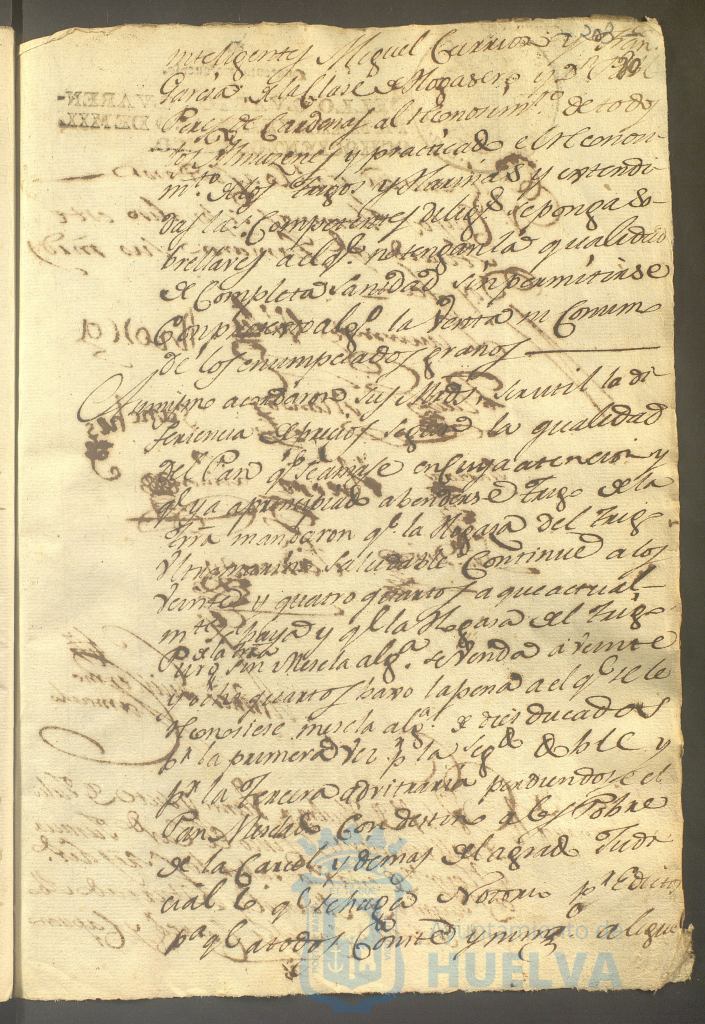 inteligentes Miguel Carrion y Juan
Garcia de la Clase de Hogaseros y
Perez de Cardenas al reconosim.to de todos
los Almazenes y practicado el reconosi-
m.to de los trigos y Harinas y extendi
das las Competentes dilig.s se ponga so-
brellaves a el q.e no tengan la qualidad
de Completa sanidad sin permitirse
Con pretexto alg.o la Venta ni Consumo
de los enumpciados granos
Asimismo acordaron sus Mrds. ser util la di
feriencia de precios segun la qualidad
del Pan q.e se amase en Cuya atencion y
q.e ya a prinsipiado a benderse trigo de la
tierra mandaron q.e la Hogasa del trigo
Ultramarino saludable Continue a los
veinte y quatro quartos a que actual-
m.te se haya y q.e la Hogasa del trigo
de la trra
puro sin Mescla alg.a se venda a veinte
y ocho quartos bavo la pena a el q.e se le
reconosiese mescla alg.a de dies ducados
p.r la primera vez p.r la seg.da doble y
p.r la tercera advitraria perdiendose el
Pan Mesclado Con destino a los Pobres
de la Carcel y demas del agrado Judi
cial lo q.e se haga Notorio p.r Edictos
p.a q.e a todos Conste y ning.o alegue
Ayuntamiento de
HUELVA